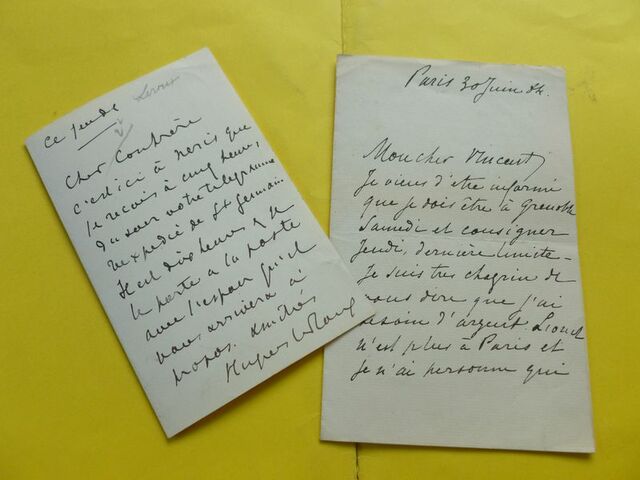 Ce Jeudi
Leroux
Cher Confrère
c'est ici à Paris que
je reçois à cinq heures,
du soir votre télégramme
réexpédié de St Germain
Il est dix heures, je
le porte à la poste
avec l'espoir qu'il
vous arrivera à
propos. Amitiés
Hugues Le Roux
Paris 30 Juin 84.
Mon cher Vincent
Je viens d'être informé
que je dois être à Grenoble
Samedi et consigner
Jeudi, dernière limite –
Je suis très chagrin de
vous dire que j'ai
besoin d'argent. Lionel
n'est plus à Paris et
je n'ai personne qui